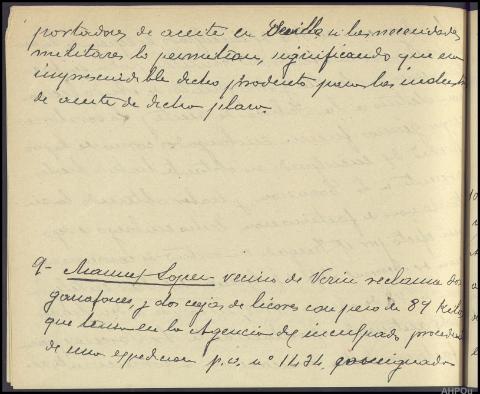 portadores de aceite en Sevilla si las necesidades
militares lo permitian, significando que era
imprescindible dicho producto para las industrias
de aceite de dicha plaza.
9- Manuel Lopez vecino de Verin reclama dos
garrafones y dos cajas de licores con peso de 89 kilos
que tenia en la Agencia del inculpado procedente
de una expedicion p.v. nº 1474 consignada
AHPOu